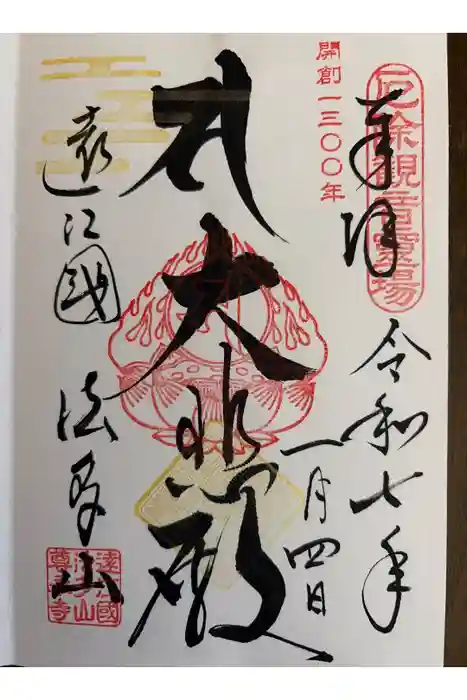 厄除觀音靈場
奉拝
開創一三〇〇年
令和七年
一月四日
大悲殿
遠江國
法多山
遠江國
法多山
尊永寺